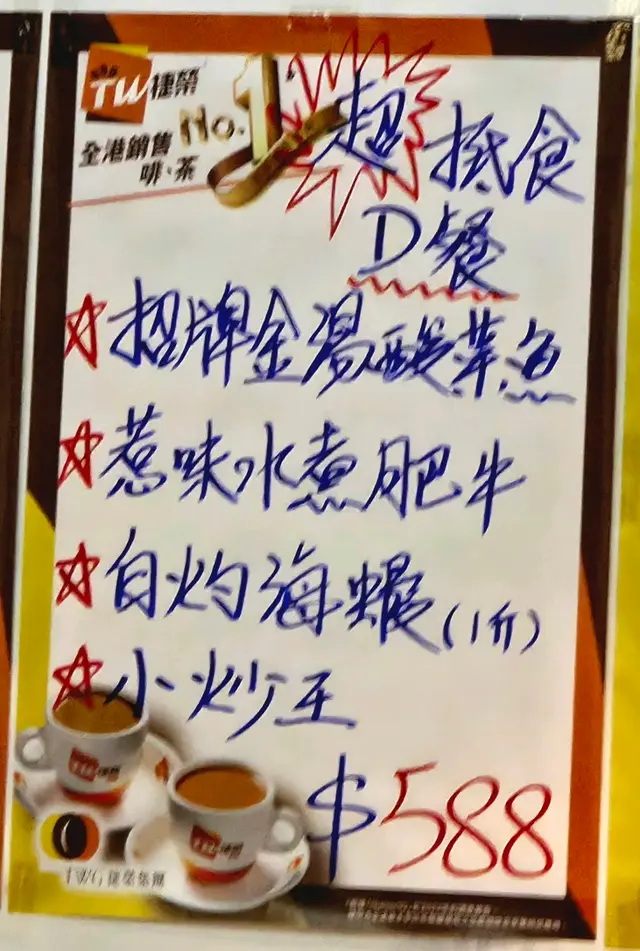 TW捷榮
No.1
全港銷售
啡·茶
超抵食
D餐
招牌金湯酸菜魚
惹味水煮肥牛
白灼海蝦(1斤)
小炒王
$588
TW捷榮
TW捷榮
TWG 捷榮集團